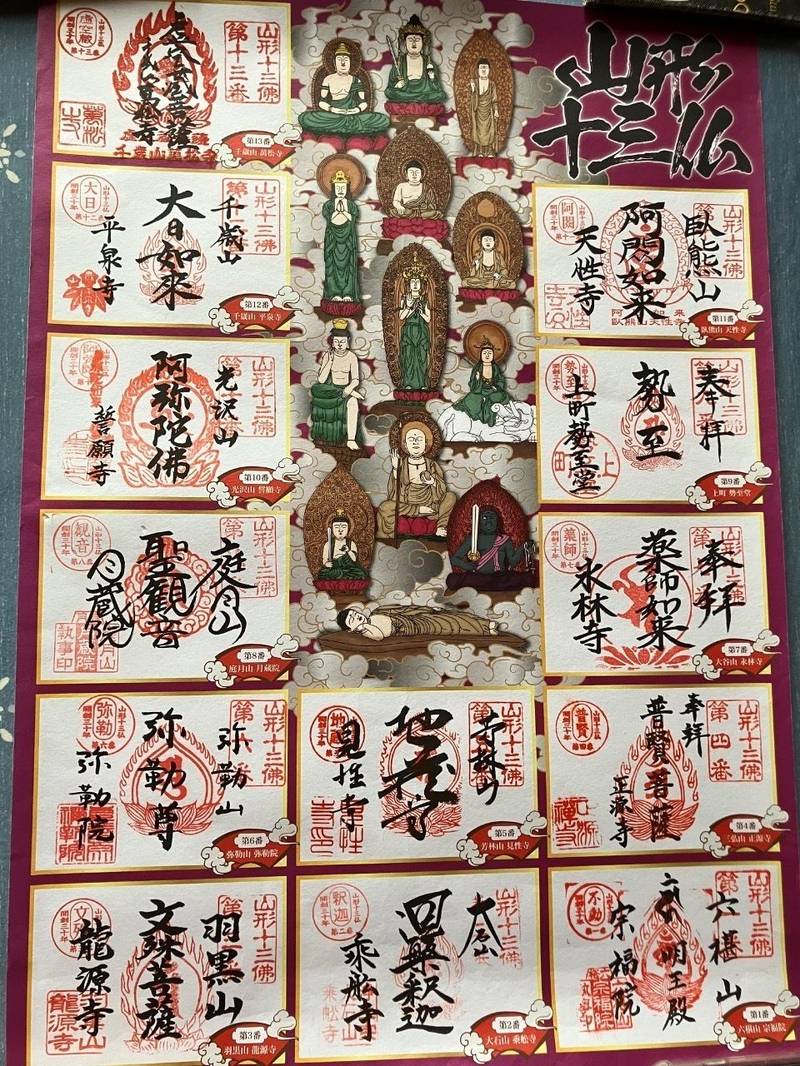 山形
十三仏
山形十三佛
第十三番
虚空蔵
開創三十年
第十三番
萬松寺
第13番
千歳山 萬松寺
山形十三佛
千歳山
大日如來
平泉寺
大日
開創三十年
第12番
千歳山 平泉寺
山形十三佛
臥熊山
阿閦如来
天性寺
阿閦
開創三十年
第11番
臥熊山 天性寺
山形十三佛
光沢山
阿弥陀佛
誓願寺
開創三十年
第10番
光沢山 誓願寺
山形十三佛
奉拝
勢至
上町勢至堂
勢至
開創三十年
第9番
上町 勢至堂
山形十三佛
庭月山
聖観音
月蔵院
観音
開創三十年
第八番
第8番
庭月山 月蔵院
山形十三佛
奉拝
薬師如来
永林寺
薬師
開創三十年
第7番
大谷山 永林寺
山形十三佛
弥勒山
弥勒尊
弥勒院
弥勒
開創三十年
第六番
第6番
弥勒山 弥勒院
山形十三佛
芳林山
地蔵尊
見性寺
地蔵
開創三十年
第5番
芳林山 見性寺
山形十三佛
第四番
奉拝
普賢菩薩
正源寺
普賢
開創三十年
第四番
第4番
三弘山 正源寺
山形十三佛
羽黒山
文殊菩薩
龍源寺
文殊
開創三十年
龍源寺
第3番
羽黒山 龍源寺
山形十三佛
大石山
釈迦
乗舩寺
釈迦
開創三十年
第二番
乗舩寺
第2番
大石山 乗舩寺
山形十三佛
六椹山
明王殿
宗福院
不動
開創三十年
第一番
第1番
六椹山 宗福院